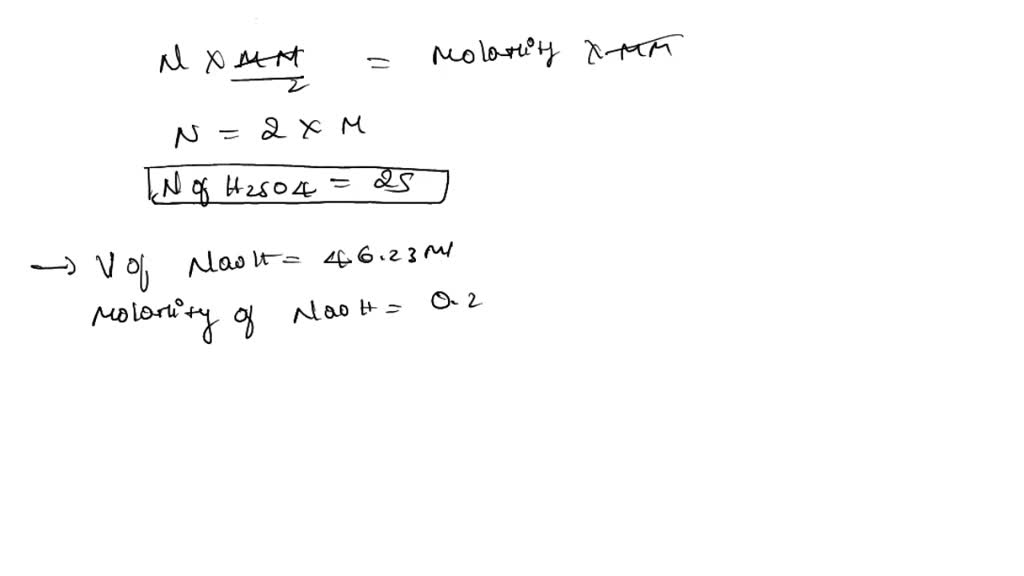 N X MM/2 = Molarity X MM
N = 2 X M
N of H2SO4 = 2S
→ V of NaOH = 46.23 Ml
Molarity of NaOH = 0.2